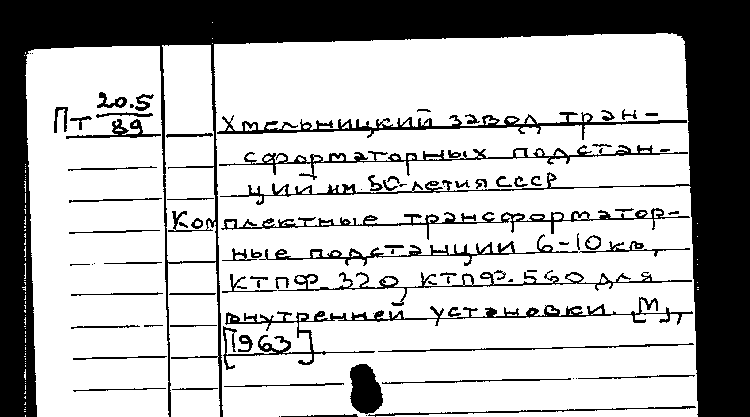 Пт 20.5/89
Хмельницкий завод тран-
сформаторных подстан-
ций им 50-летия СССР
Комплектные трансформатор-
ные подстанции 6-10 кв,
КТПФ-320, КТПФ-560 для
внутренней установки. [М],
[1963].